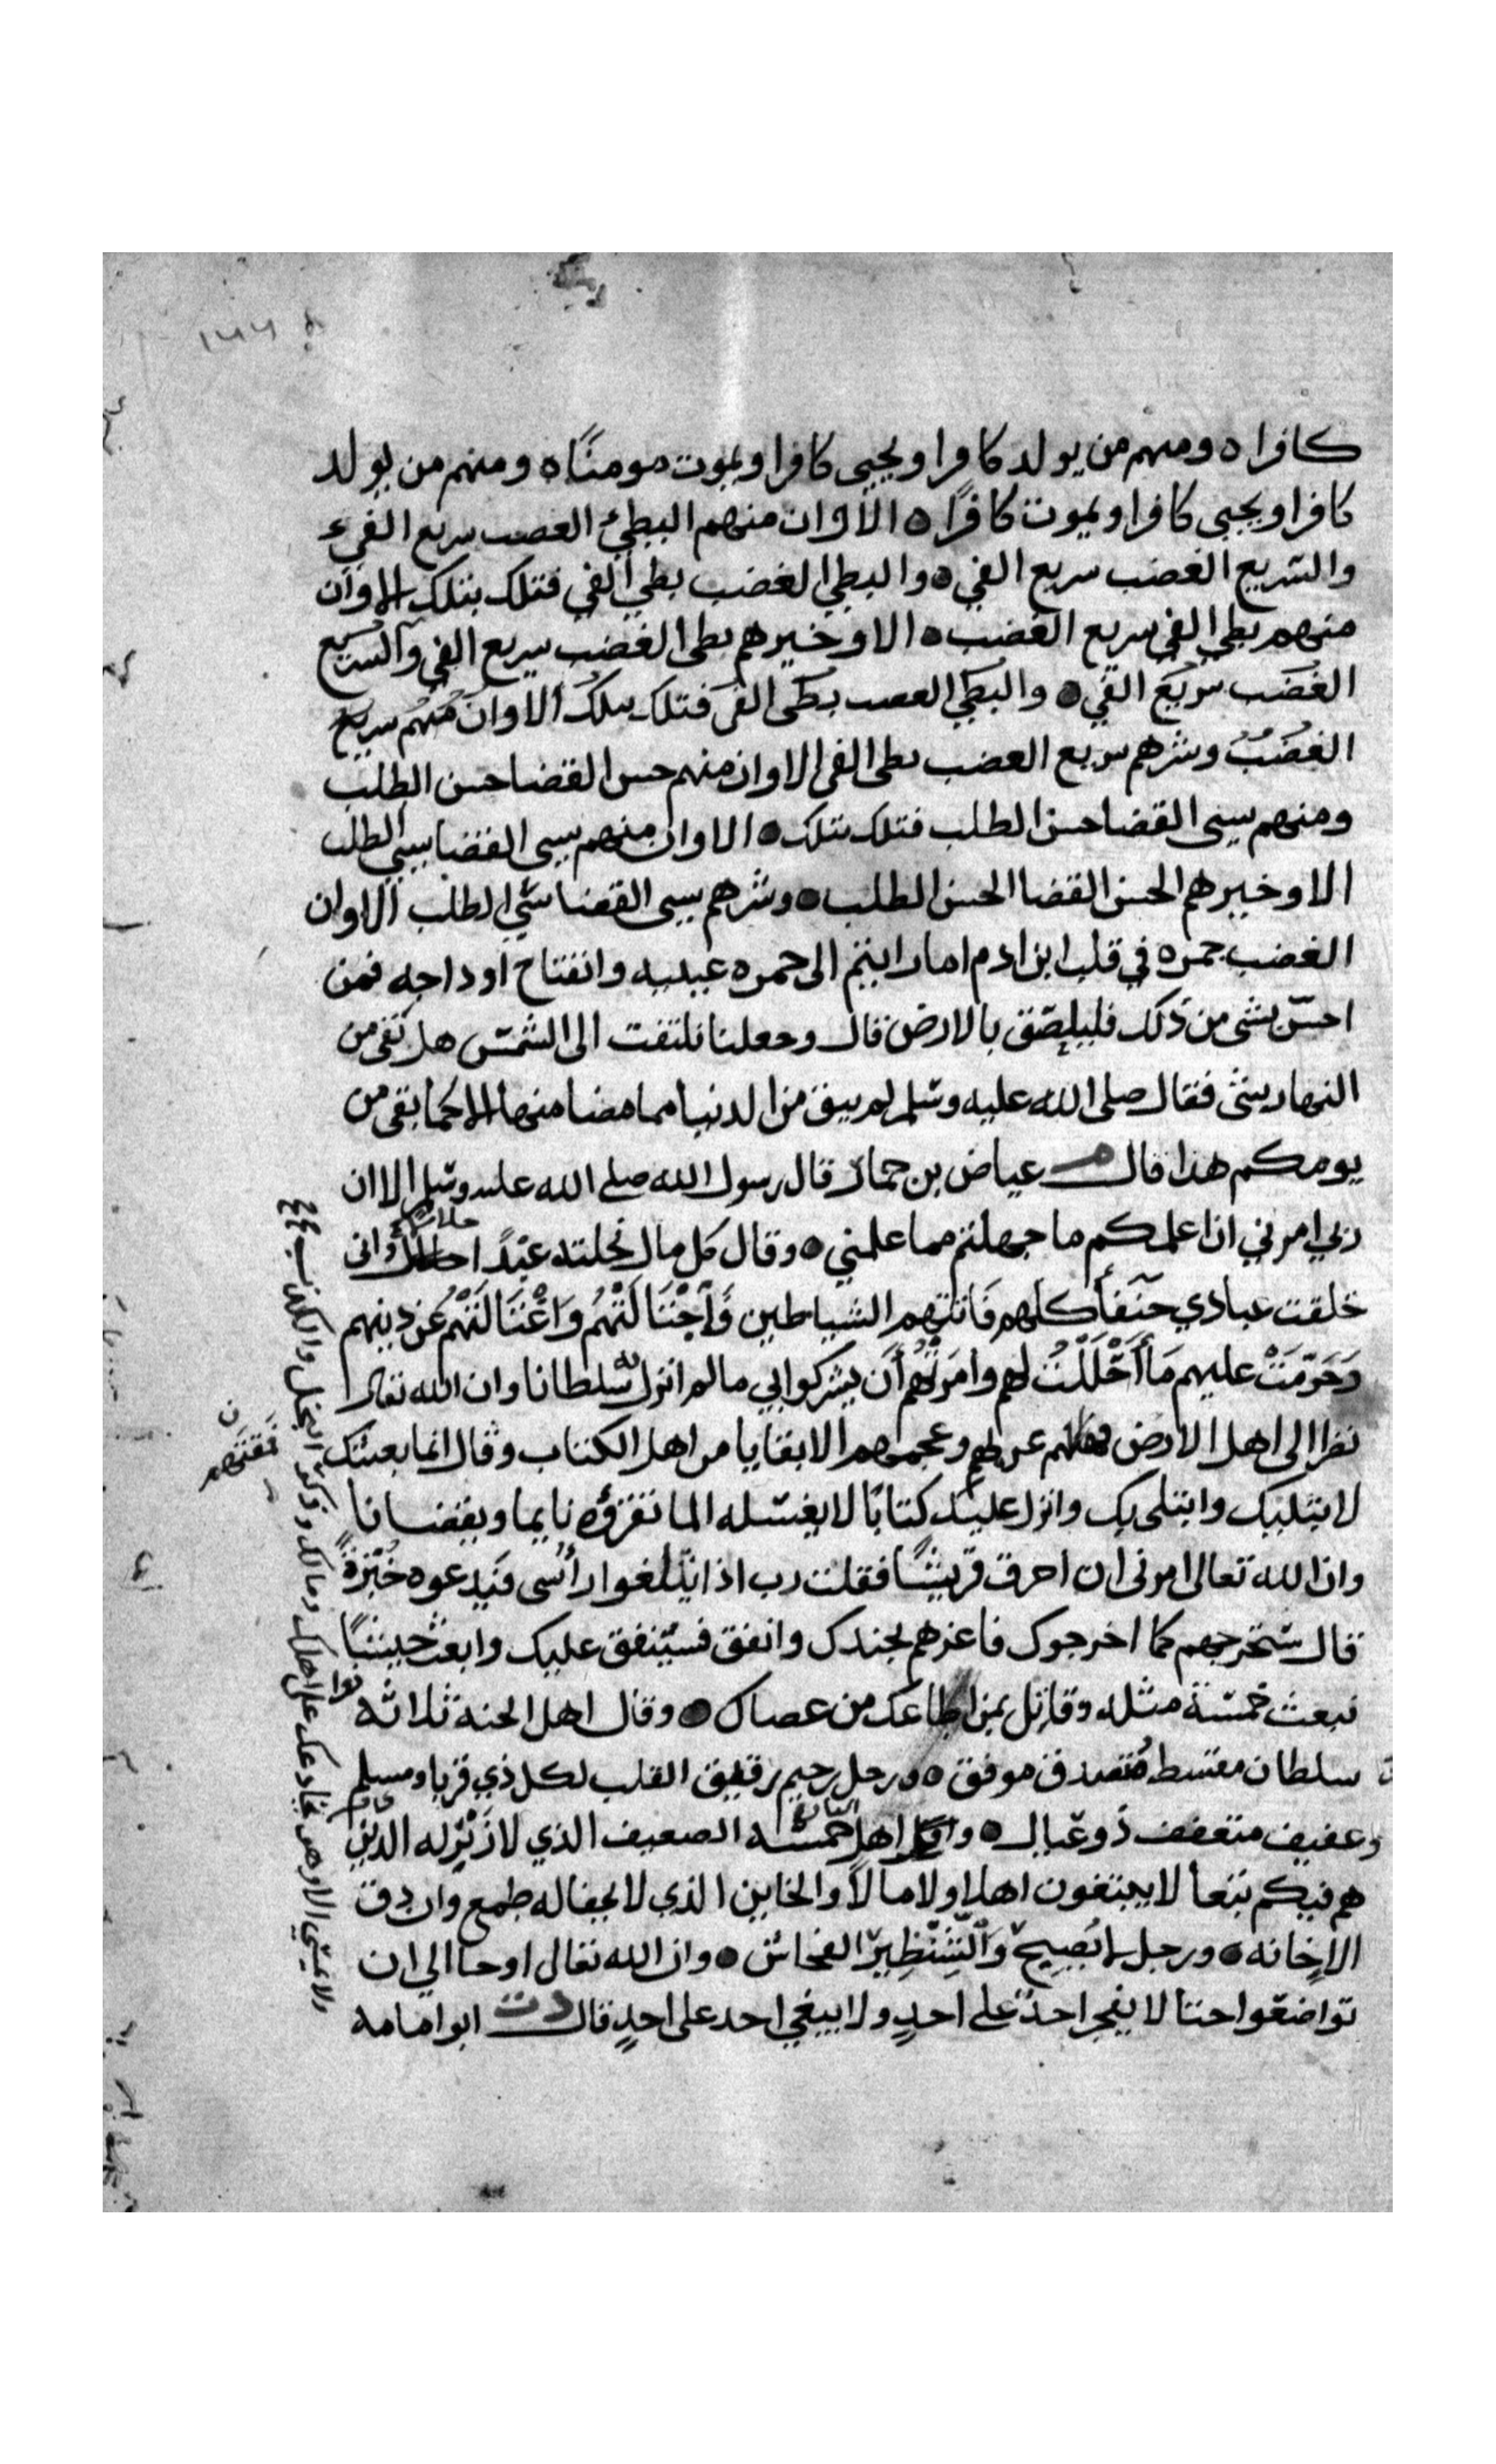 ١٦٦
كافرا ه ومنهم من يولد كافرا ويحيى كافرا ويموت مومنًا ه ومنهم من يولد
كافرا ويحيى كافرا ويموت كافرًا ه الا وان منهم البطيء الغضب سريع الفيء
والسريع الغضب سريع الفي ه والبطي الغضب بطي الفي فتلك بتلك الا وان
منهم بطي الفي سريع الغضب ه الا وخيرهم بطى الغضب سريع الفي والسريع
الغضب سريع الفي ه والبطي الغضب بطى الفى فتلك بتلك الا وان منهم سريع
الغضب وشرهم سريع الغضب بطى الفى الا وان منهم حسن القضا حسن الطلب
ومنهم سيى القضا حسن الطلب فتلك بتلك ه الا وان منهم سيى القضا سيي الطلب
الا وخيرهم الحسن القضا الحسن الطلب ه وشرهم سيى القضا سّي الطلب الا وان
الغضب جمره في قلب ابن ادم اما رايتم الى حمره عينيه وانتفاخ اوداجه فمن
احسّ بشى من ذلك فليلصق بالارض قال وجعلنا نلتفت الى الشمس هل بقى من
النهار شى فقال صلى الله عليه وسلم لم يبق من الدنيا مما مضا منها الا كما بقى من
يومكم هذا قال م عياض بن حمار قال رسول الله صلى الله عليه وسلم الا ان
ربي امرني ان اعلمكم ما جهلتم مما علمني ه وقال كل مال نحلته عبدًا حلال واني
خلقت عبادي حنفأ كلهم فاتتهم الشياطين فَاجْتَالَتْهُم وَاغْتَالَتْهُم عن دينهم
وَحَرّمَتْ عليهم مَا أَحْلَلْتُ لهم وامَرتْهُم أَن يشركوا بي ما لم انزل به سلطانا وان الله تعالى
نظر الى اهل الارض عربهم وعجمهم الا بقايا من اهل الكتاب وقال انما بعثتك
فمقتهم
لابتليك وابتلى بك وانزل عليك كتابًا لا يغسله الما تقرؤه نايما ويقضانا
وان الله تعالى امرنى ان احرق قريشًا فقلت رب اذا يثلغوا رأسى فيدعوه خُبْزةً
قال ستخرجهم كما اخرجوك فاغزهم بجندك وانفق فسينفق عليك وابعث جيشًا
نبعث خمسة مثله وقاتل بمن اطاعك من عصاك ه وقال اهل الجنه ثلاثه
سلطان مقسط متصدق موفق ه ورجل رحيم رقيق القلب لكل ذي قربا ومسلم
وعفيف متعفف ذو عيال ه اهل النار خمسه الضعيف الذي لا زَبْرله الذين
هم فيكم تبعأ لا يبتغون اهلا ولا مالاً والخاين الذي لا يخفا له طمع وان دق
الا خانه ه ورجل لا يصبح
ولا يمسي الا وهو يخادعك عن اهلك ومالك وذكر البخل والكذب
وَالشِّنْظِيرُ الفحاش ه وان الله تعالى اوحا الي ان
تواضعوا حتا لا يفخر احدٌ على احدٍ ولا يبغي احد على احدٍ قال ابو امامه